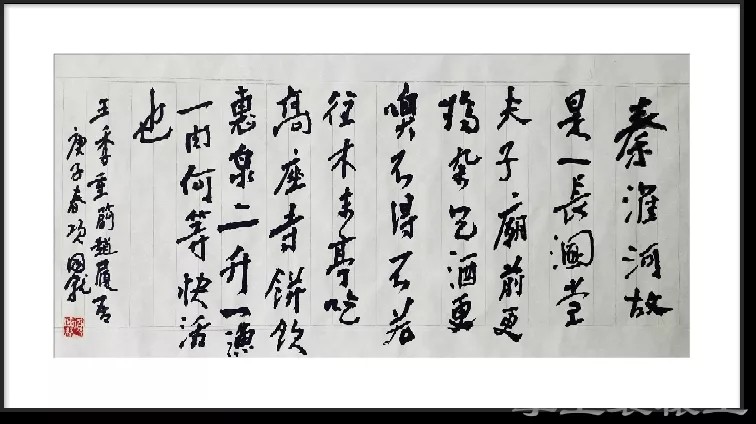 秦淮河故
是一長溷堂
夫子廟前更
擠杂包酒更
嗅不得不若
往木末亭吃
高座寺餅飲
惠泉二升一漁
一肉何等快活
也
王季重簡趙履吾
庚子春項国